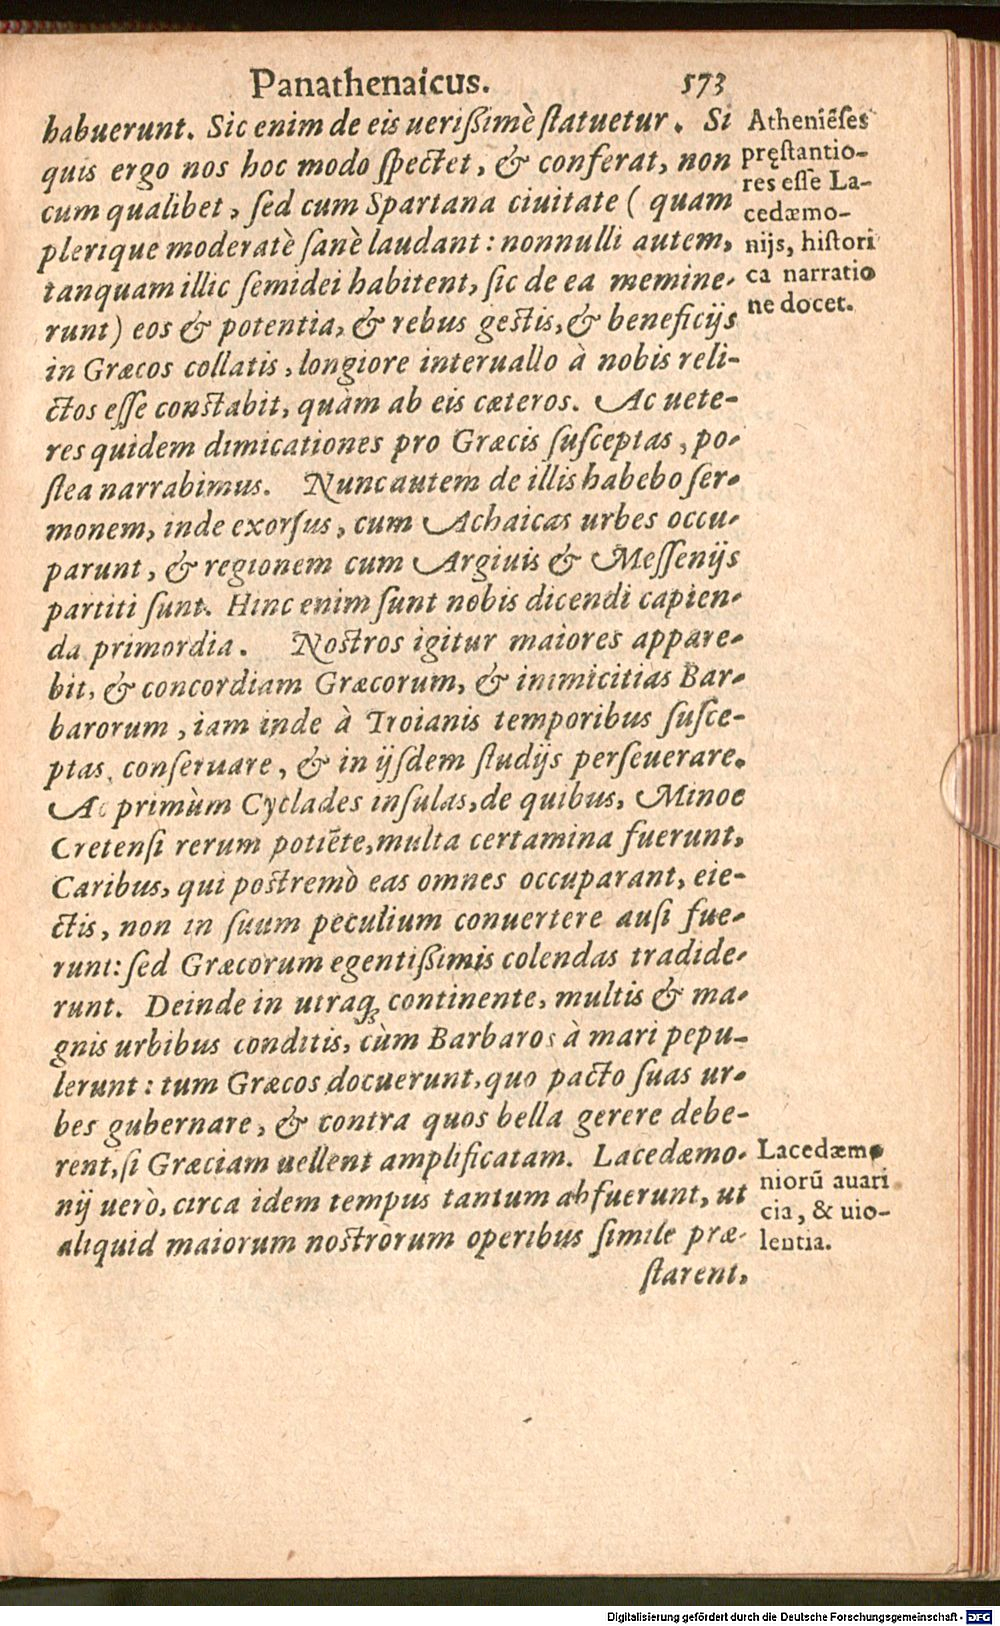 Panathenaicus. 573
habuerunt. Sic enim de eis uerißimè ſtatuetur. Si
quis ergo nos hoc modo ſpectet, & conferat, non
cum qualibet, ſed cum Spartana ciuitate ( quam
plerique moderatè ſanè laudant: nonnulli autem,
tanquam illic ſemidei habitent, ſic de ea memine-
runt) eos & potentia, & rebus geſtis, & beneficijs
in Græcos collatis, longiore interuallo à nobis reli-
ctos eſſe conſtabit, quàm ab eis cæteros. Ac uete-
res quidem dimicationes pro Græcis ſuſceptas, po-
ſtea narrabimus. Nunc autem de illis habebo ſer-
monem, inde exorſus, cum Achaicas urbes occu-
parunt, & regionem cum Argiuis & Meſſenijs
partiti ſunt. Hinc enim ſunt nobis dicendi capien-
da primordia. Noſtros igitur maiores appare-
bit, & concordiam Græcorum, & inimicitias Bar-
barorum, iam inde à Troianis temporibus ſuſce-
ptas, conſeruare, & in ijſdem ſtudijs perſeuerare.
Ac primùm Cyclades inſulas, de quibus, Minoe
Cretenſi rerum potiẽte, multa certamina fuerunt,
Caribus, qui poſtremò eas omnes occuparant, eie-
ctis, non in ſuum peculium conuertere auſi fue-
runt: ſed Græcorum egentißimis colendas tradide-
runt. Deinde in utraq; continente, multis & ma-
gnis urbibus conditis, cùm Barbaros à mari pepu-
lerunt: tum Græcos docuerunt, quo pacto ſuas ur-
bes gubernare, & contra quos bella gerere debe-
rent, ſi Græciam uellent amplificatam. Lacedæmo-
nij uerò, circa idem tempus tantum abfuerunt, ut
aliquid maiorum noſtrorum operibus ſimile præ-
ſtarent,
Atheniẽſes
pręſtantio-
res eſſe La-
cedæmo-
nijs, hiſtori
ca narratio
ne docet.
Lacedæmo
niorũ auari
cia, & uio-
lentia.
Digitalisierung gefördert durch die Deutsche Forschungsgemeinschaft - DFG